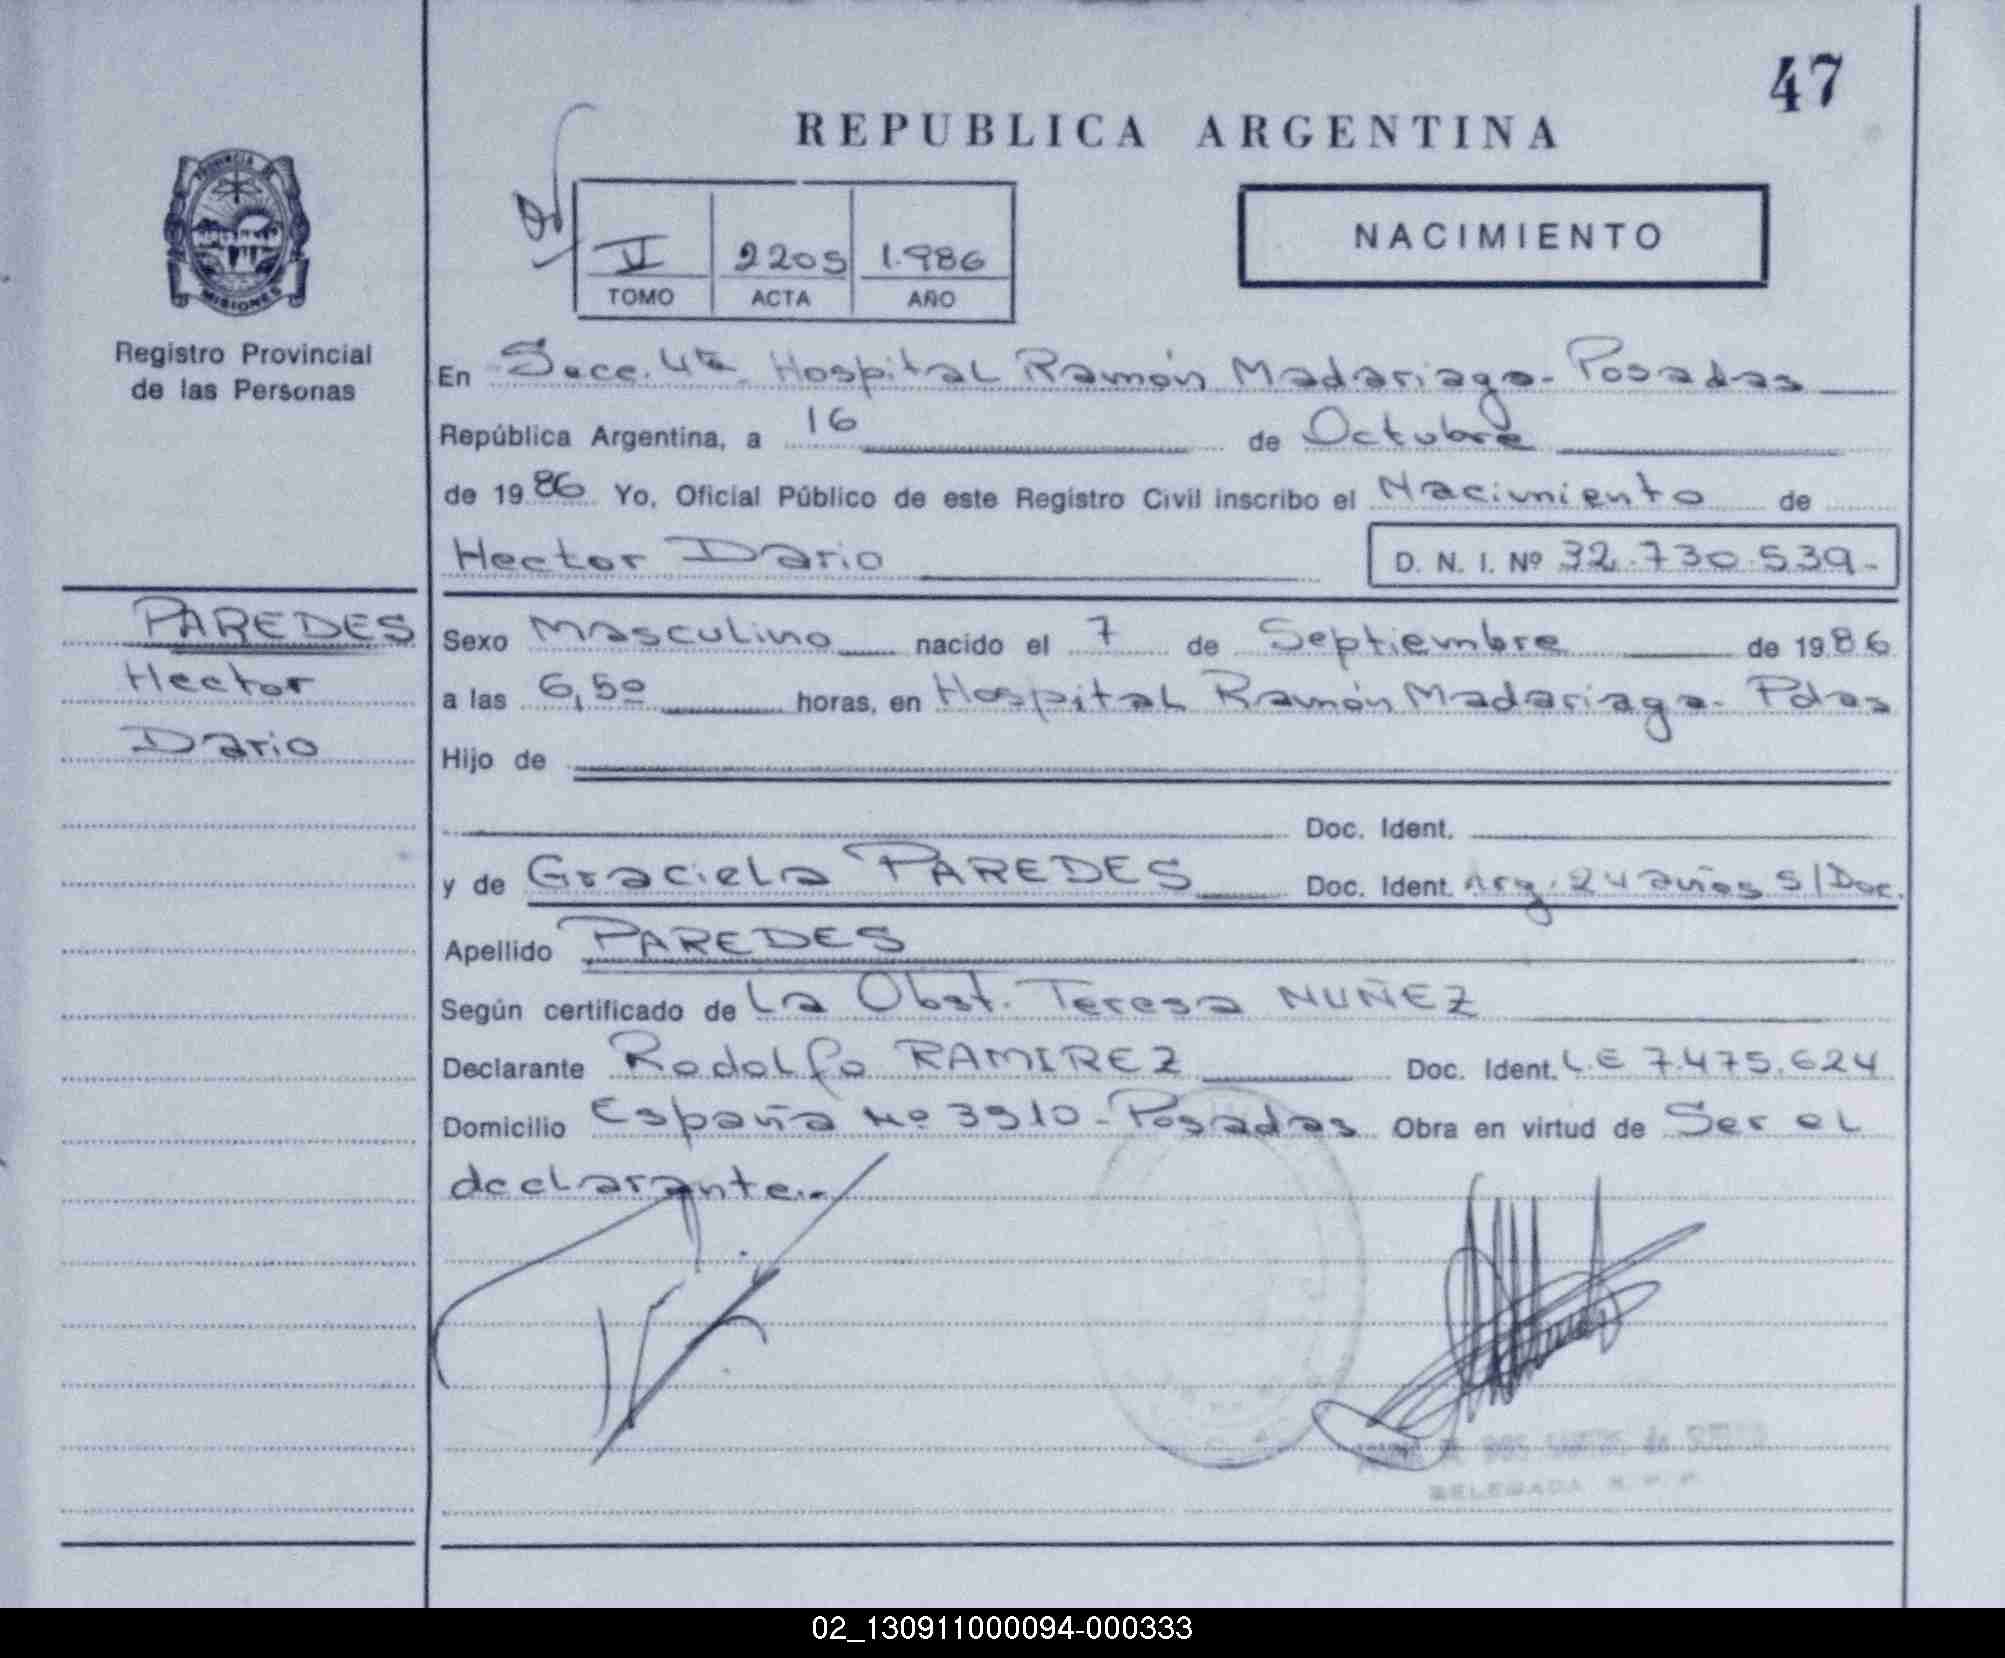 47
REPUBLICA ARGENTINA
PROVINCIA DE
MISIONES
Registro Provincial
de las Personas
II 2205 1.986
TOMO ACTA AÑO
NACIMIENTO
En Secc. 4ta. Hospital Ramón Madariaga - Posadas
República Argentina, a 16 de Octubre
de 1986 Yo, Oficial Público de este Registro Civil inscribo el Nacimiento de
Hector Dario D. N. I. Nº 32.730.539.-
PAREDES
Hector
Dario
Sexo Masculino nacido el 7 de Septiembre de 1986
a las 6,50 horas, en Hospital Ramón Madariaga - Pdas
Hijo de
Doc. Ident.
y de Graciela PAREDES Doc. Ident. Arg. 24 años S/Doc.
Apellido PAREDES
Según certificado de La Obst. Teresa NUÑEZ
Declarante Rodolfo RAMIREZ Doc. Ident. L.E 7.475.624
Domicilio España Nº 3910 - Posadas Obra en virtud de Ser el
declarante.-
DELEGADA R. P. P.
02_130911000094-000333